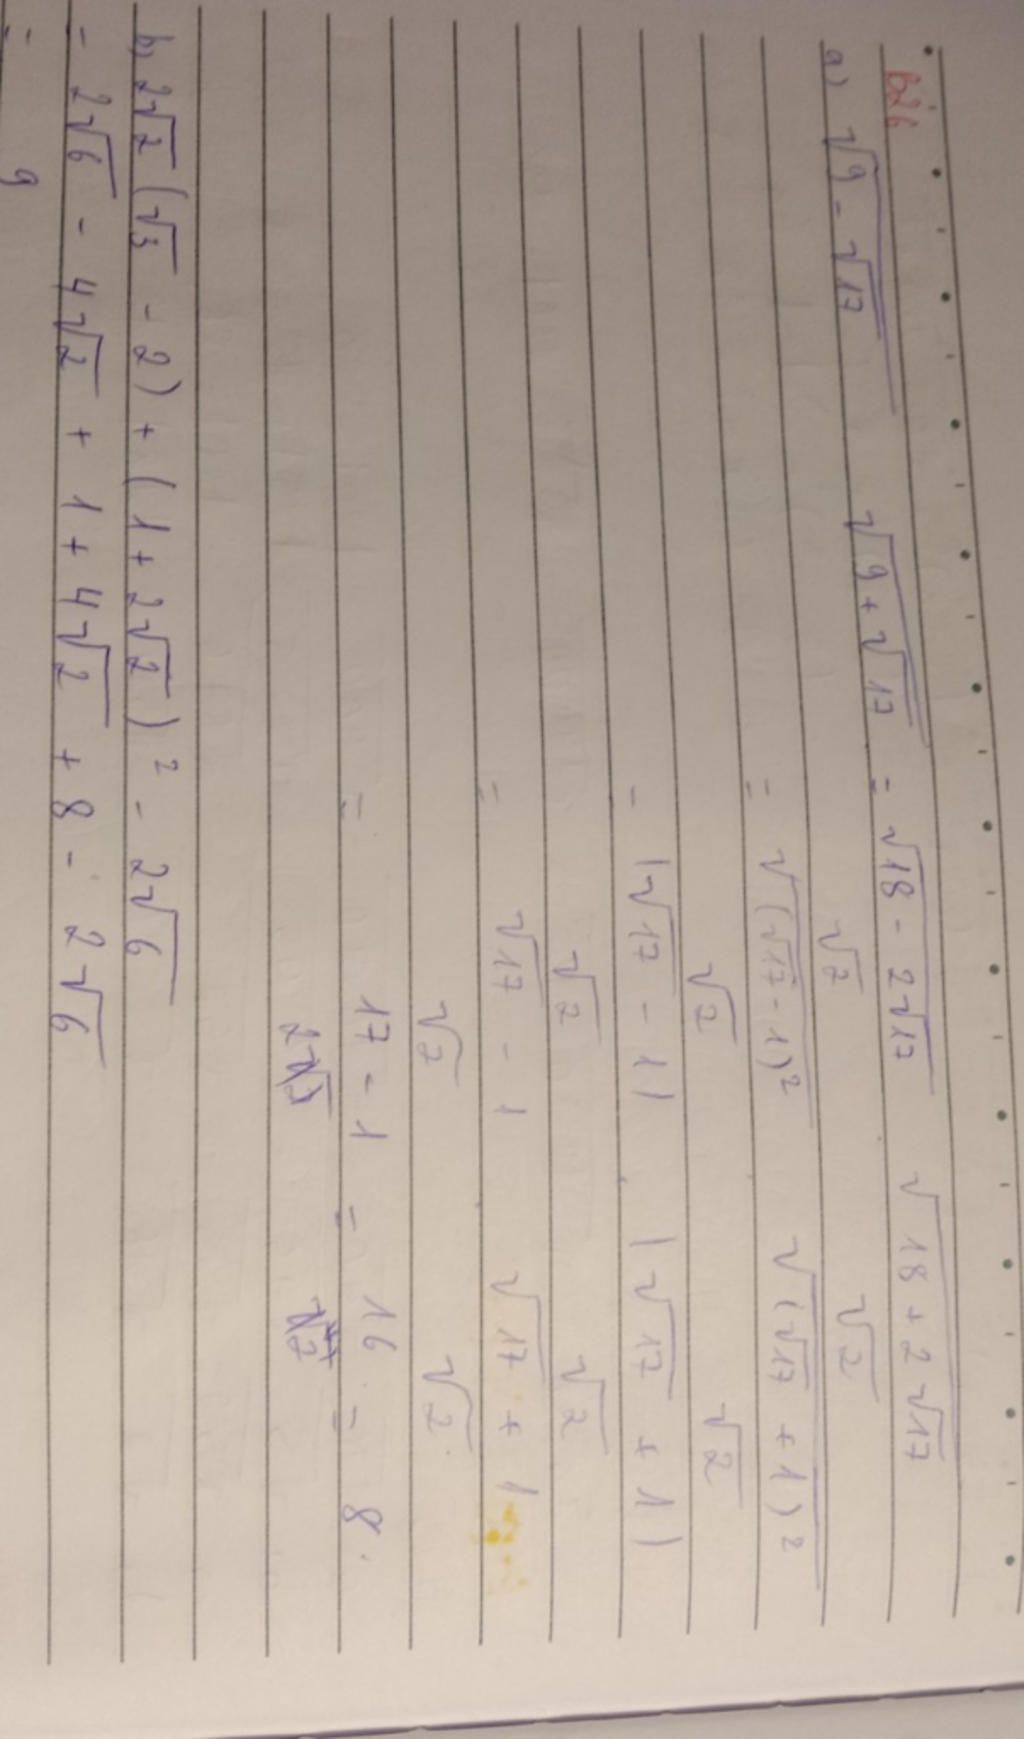 b26
a) √(9 - √17) √(9 + √17) = √(18 - 2√17) √(18 + 2√17)
√2 √2
= √((√17 - 1)²) √((√17 + 1)²)
√2 √2
= |√17 - 1| |√17 + 1|
√2 √2
= √17 - 1 √17 + 1
√2 √2
= 17 - 1 = 16 = 8.
2
b) 2√2 (√3 - 2) + (1 + 2√2)² - 2√6
= 2√6 - 4√2 + 1 + 4√2 + 8 - 2√6
= 9